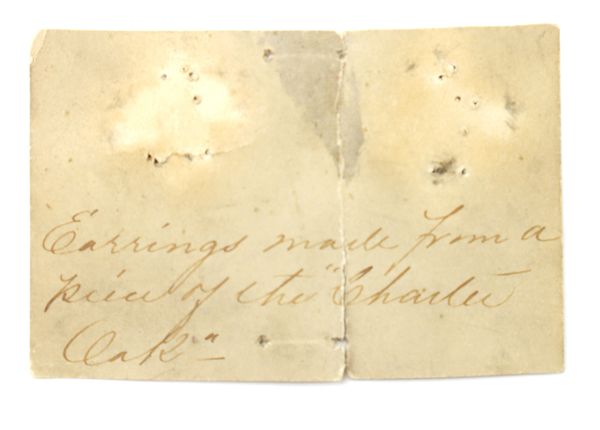 Earrings made from a
piece of the "Charter
Oak"